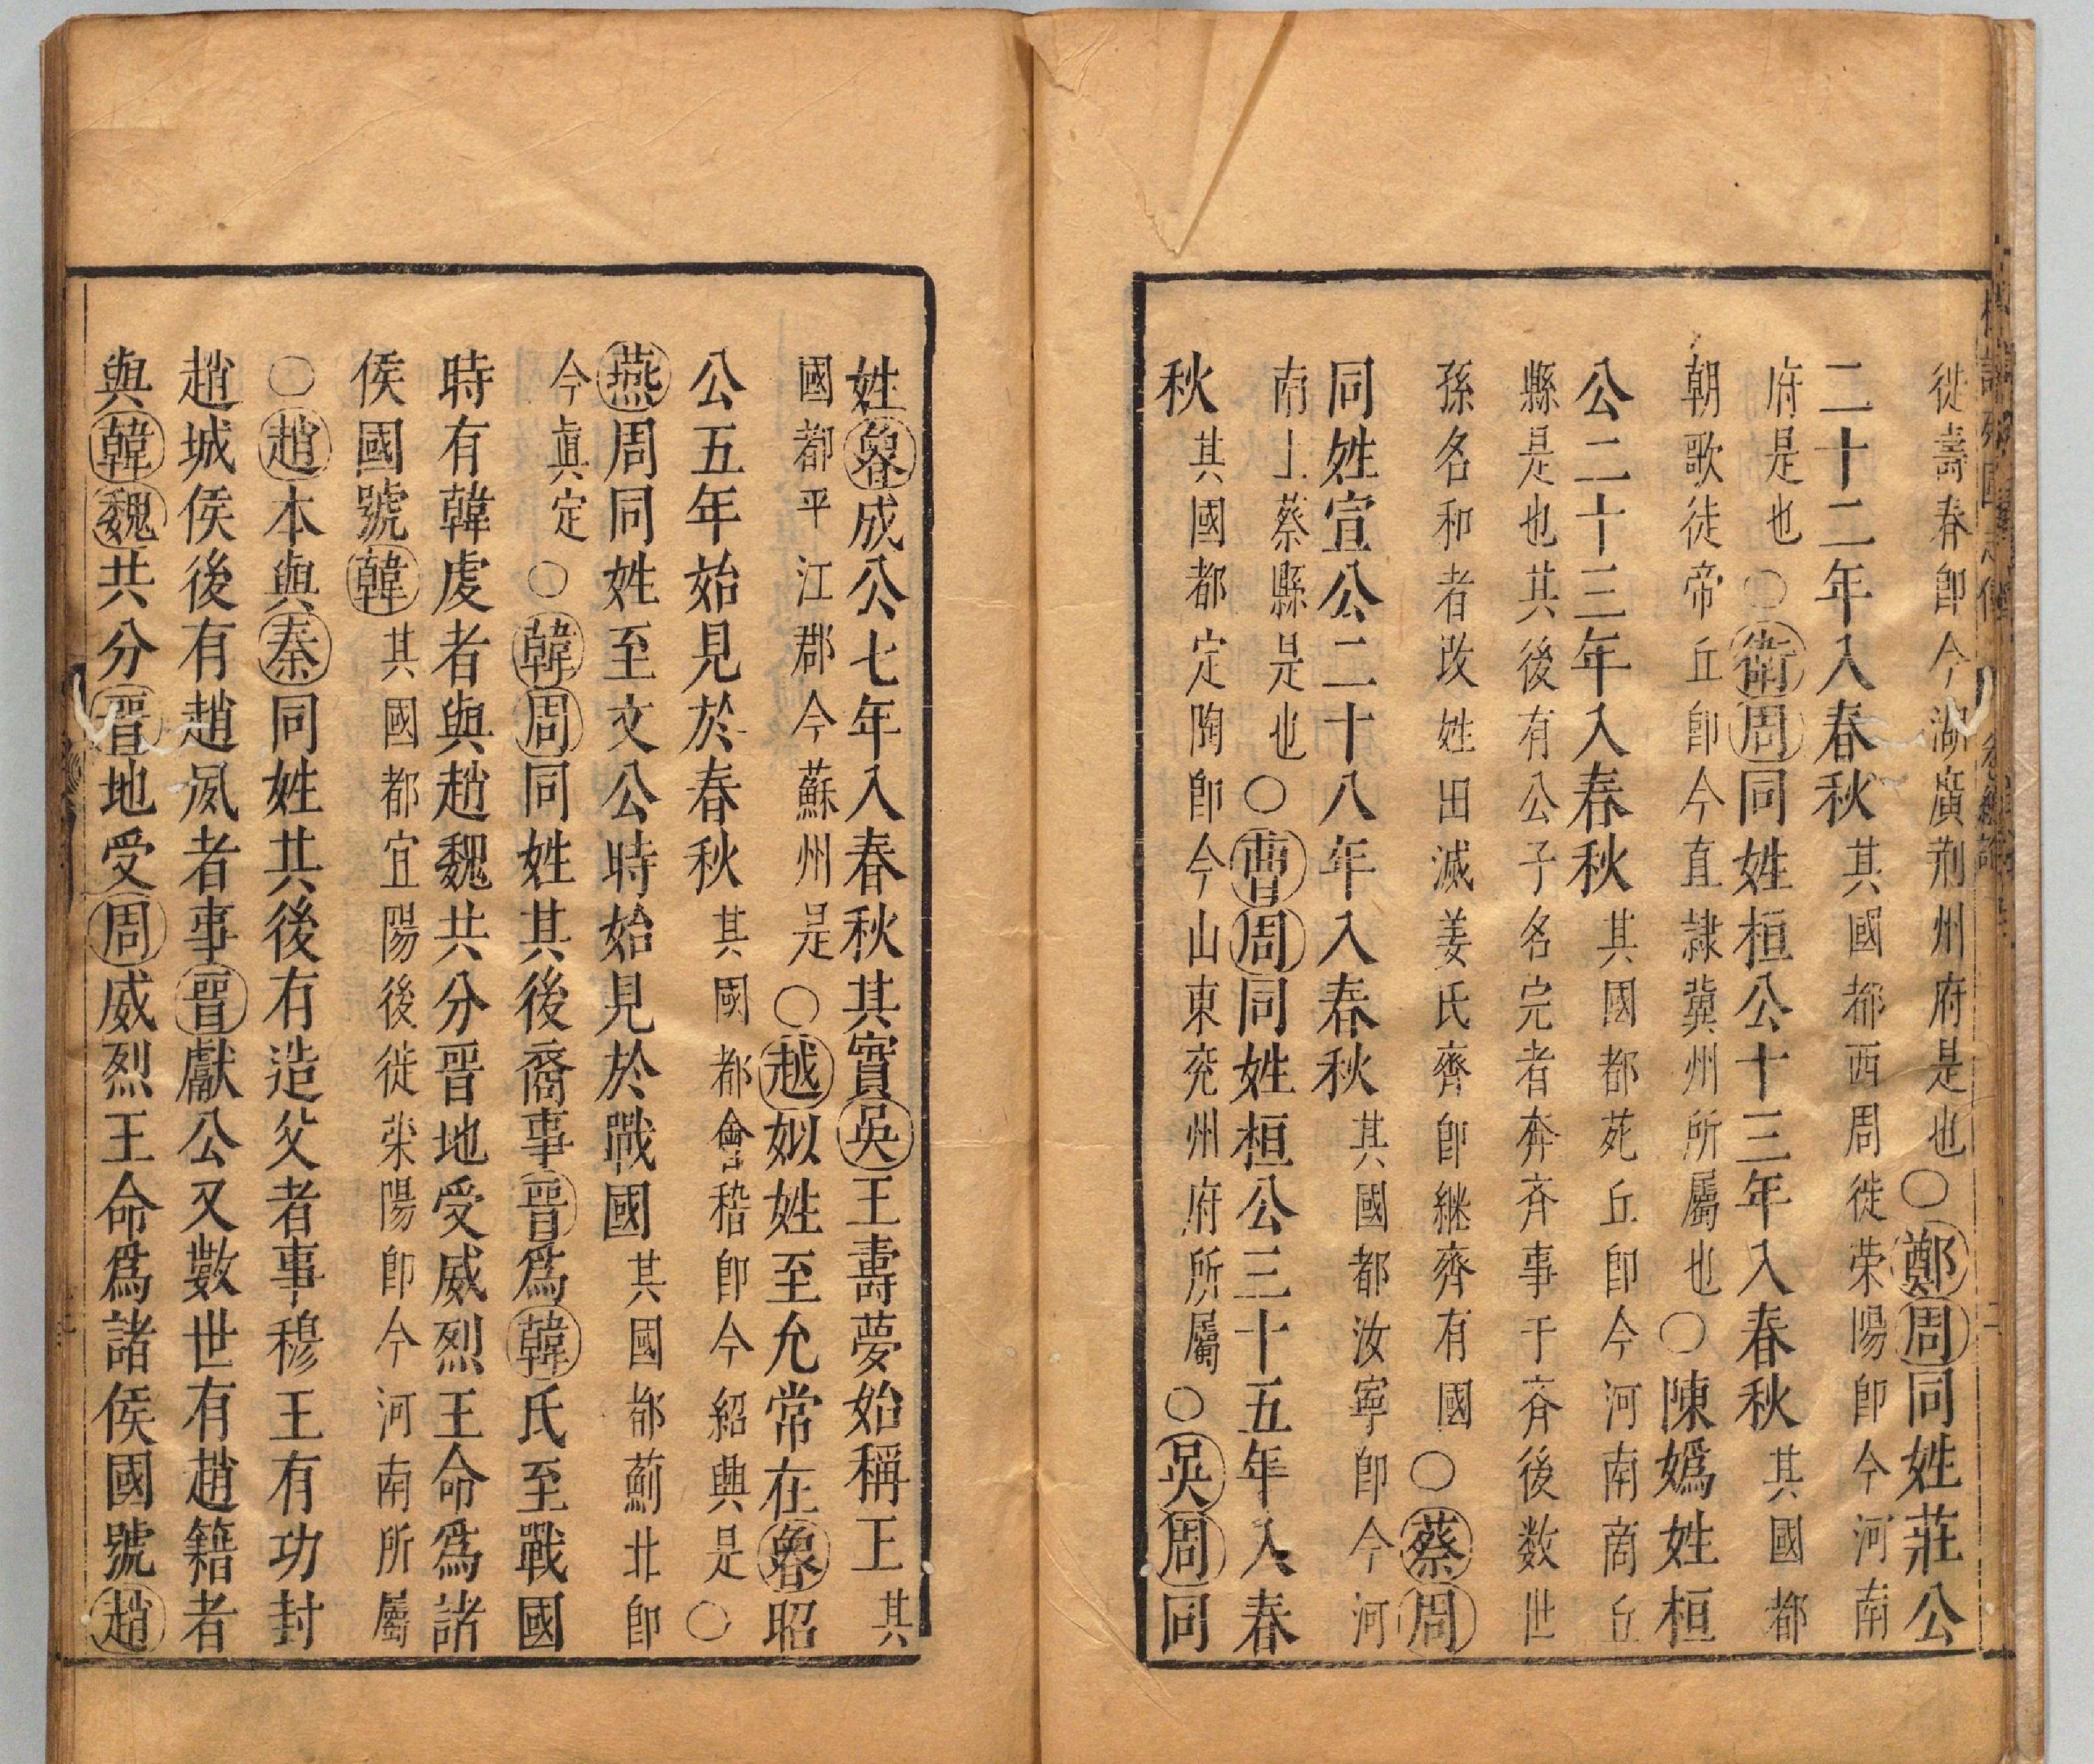 徙壽春卽今湖廣荆州府是也○鄭周同姓莊公
二十二年入春秋其國都西周徙荣陽卽今河南
府是也○衛周同姓桓公十三年入春秋其國都
朝歌徒帝丘卽今直隷冀州所屬也○陳嬀姓桓
公二十三年入春秋其國都苑丘卽今河南商丘
縣是也其後有公子名完者奔斉事于斉後数世
孫名和者改姓田滅姜氏齊卽継齊有國○蔡周
同姓宣公二十八年入春秋其國都汝寧卽今河
南上蔡縣是也○曹周同姓桓公三十五年入春
秋其國都定陶卽今山東兖州府所屬○吳周同
姓魯成公七年入春秋其實吳王壽夢始稱王其
國都平江郡今蘇州是○越姒姓至允常在魯昭
公五年始見於春秋其國都會稽卽今紹興是○
燕周同姓至文公時始見於戰國其國都薊北卽
今眞定○韓周同姓其後裔事晉爲韓氏至戰國
時有韓虔者與趙魏共分晋地受威烈王命爲諸
侯國號韓其國都宜陽後徙栄陽卽今河南所屬
○趙本與秦同姓其後有造父者事穆王有功封
趙城侯後有趙夙者事晉獻公又數世有趙籍者
與韓魏共分晉地受周威烈王命爲諸侯國號趙